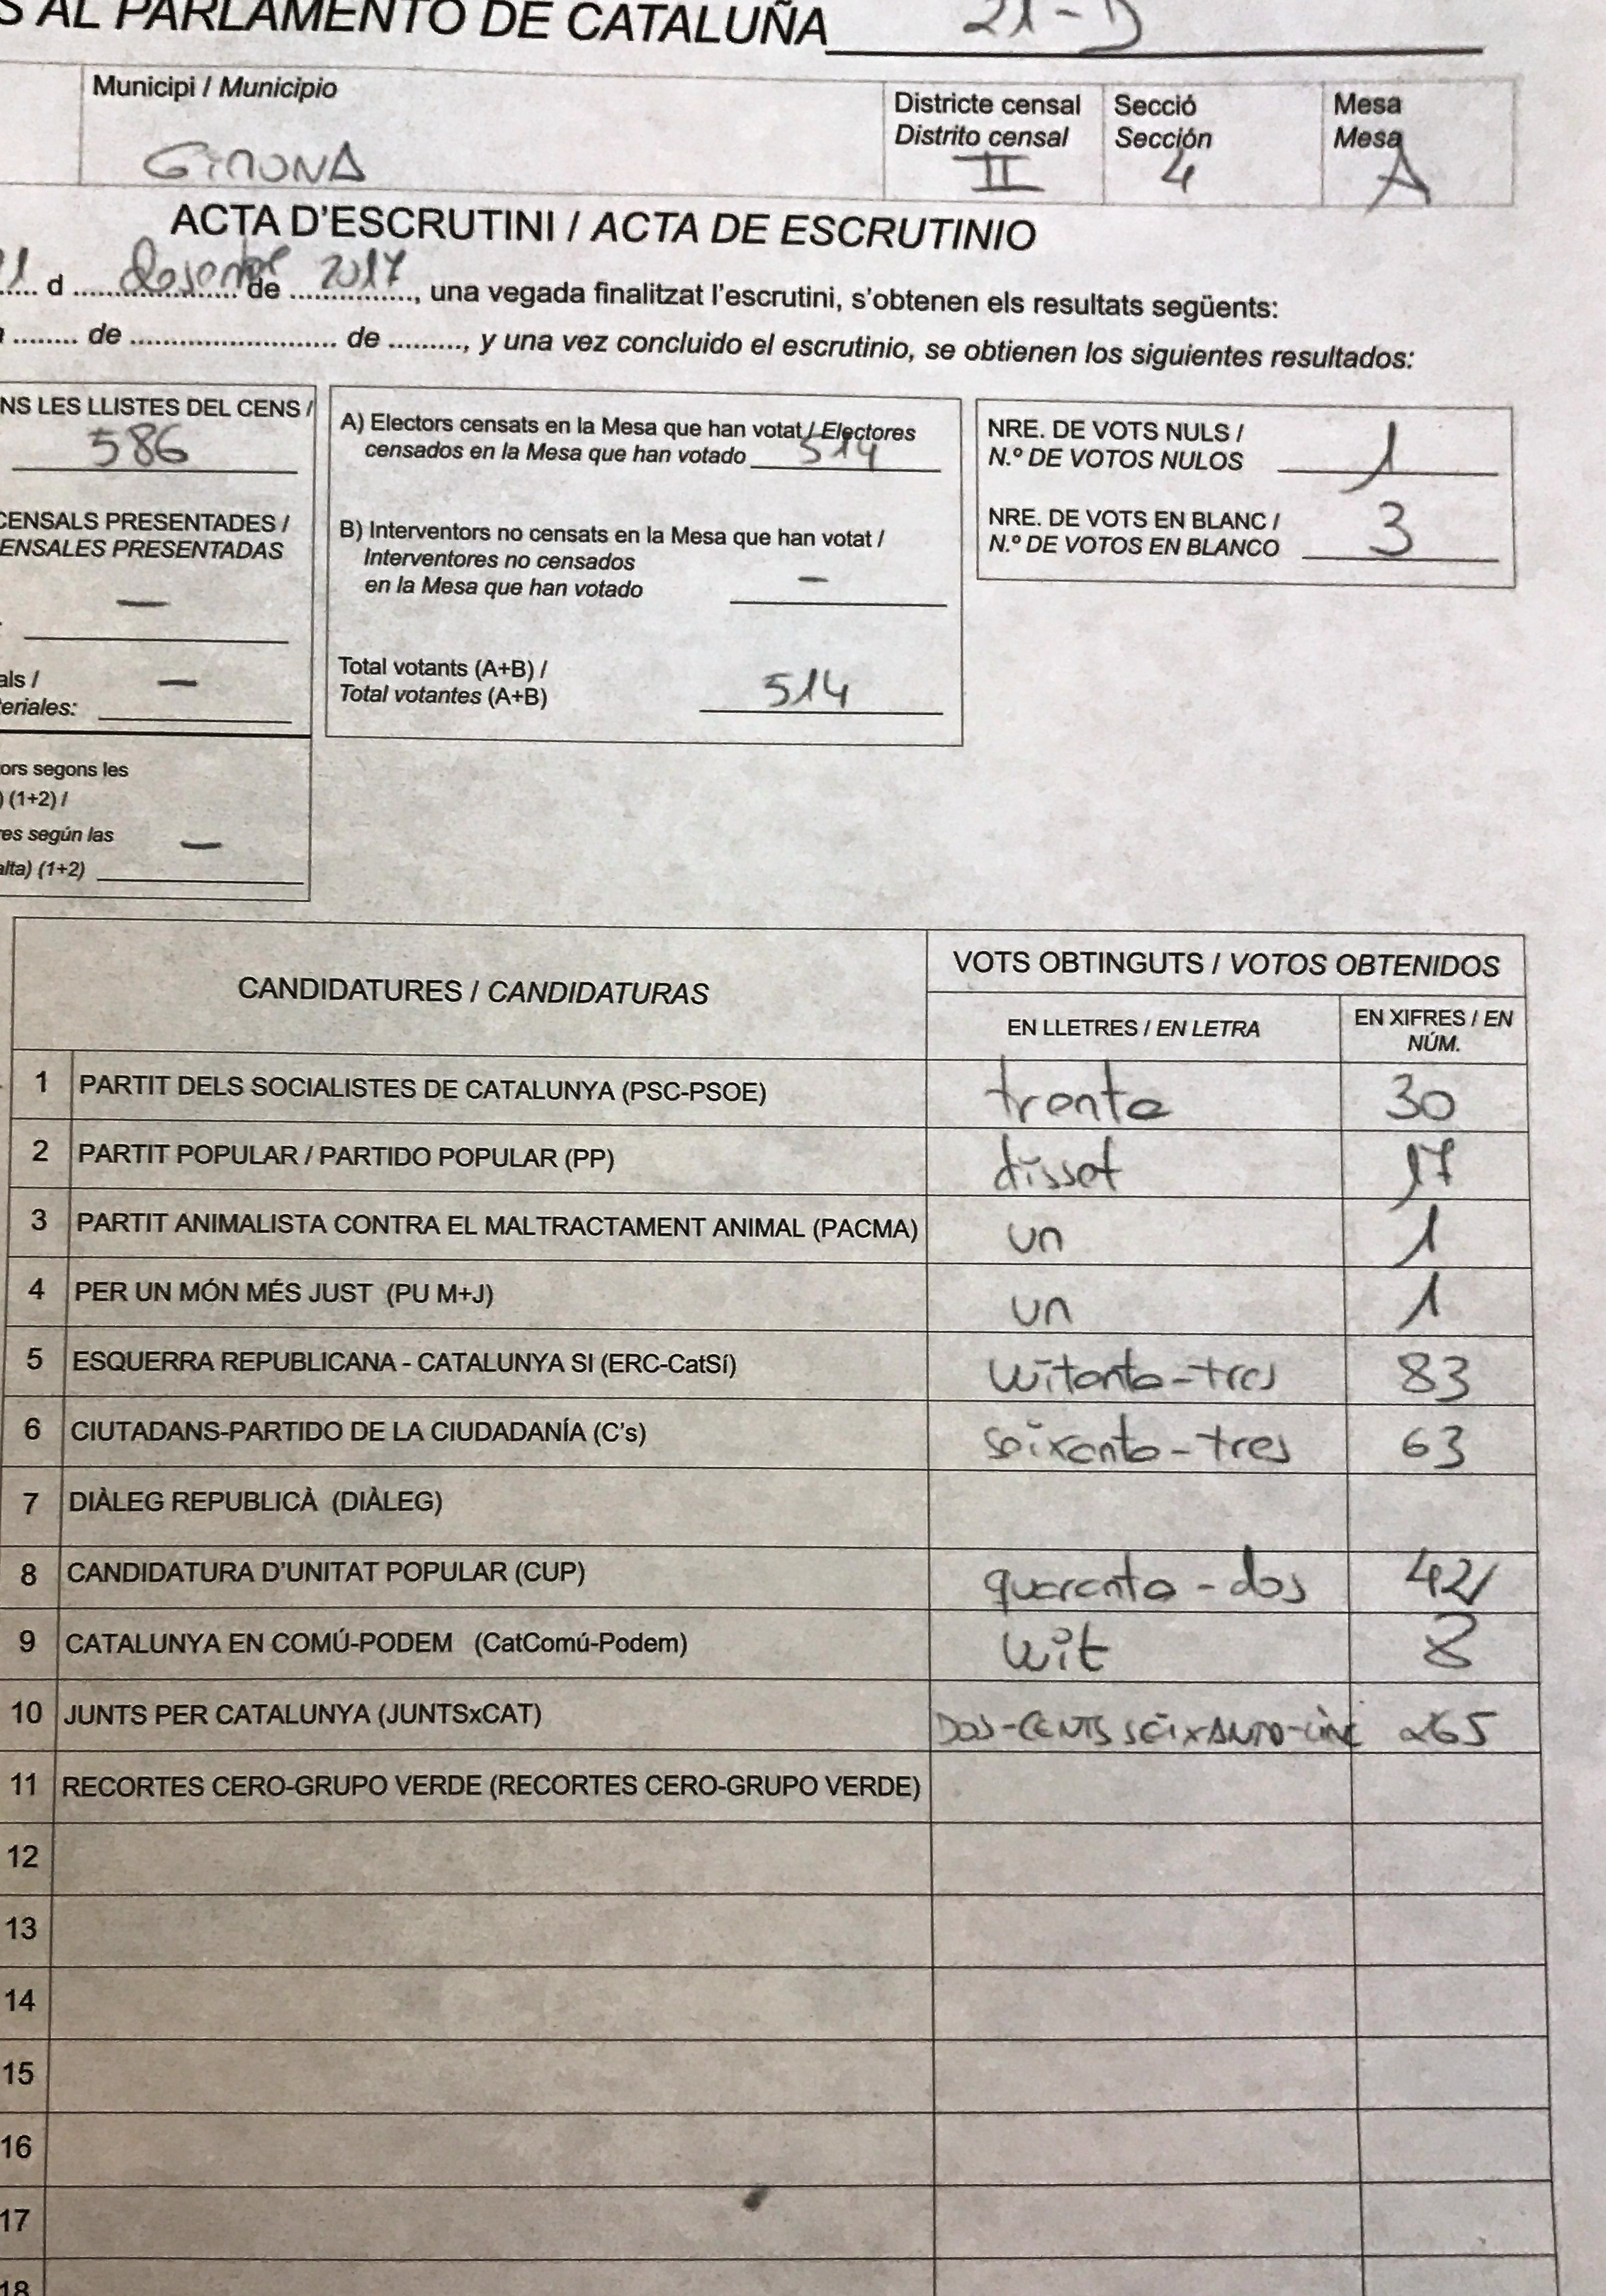 S AL PARLAMENTO DE CATALUÑA 21-D
Municipi / Municipio
GIRONA
Districte censal
Distrito censal
II
Secció
Sección
4
Mesa
Mesa
A
ACTA D'ESCRUTINI / ACTA DE ESCRUTINIO
21 d desembre de 2017, una vegada finalitzat l'escrutini, s'obtenen els resultats següents:
........ de ........................ de ........., y una vez concluido el escrutinio, se obtienen los siguientes resultados:
NS LES LLISTES DEL CENS /
586
CENSALS PRESENTADES /
ENSALES PRESENTADAS
—
als /
teriales: —
ors segons les
) (1+2) /
res según las
alta) (1+2) —
A) Electors censats en la Mesa que han votat / Electores
censados en la Mesa que han votado 514
B) Interventors no censats en la Mesa que han votat /
Interventores no censados
en la Mesa que han votado —
Total votants (A+B) /
Total votantes (A+B) 514
NRE. DE VOTS NULS /
N.º DE VOTOS NULOS 1
NRE. DE VOTS EN BLANC /
N.º DE VOTOS EN BLANCO 3
CANDIDATURES / CANDIDATURAS
VOTS OBTINGUTS / VOTOS OBTENIDOS
EN LLETRES / EN LETRA
EN XIFRES / EN
NÚM.
1 PARTIT DELS SOCIALISTES DE CATALUNYA (PSC-PSOE) trenta 30
2 PARTIT POPULAR / PARTIDO POPULAR (PP) disset 17
3 PARTIT ANIMALISTA CONTRA EL MALTRACTAMENT ANIMAL (PACMA) un 1
4 PER UN MÓN MÉS JUST (PU M+J) un 1
5 ESQUERRA REPUBLICANA - CATALUNYA SI (ERC-CatSí) vuitanta-tres 83
6 CIUTADANS-PARTIDO DE LA CIUDADANÍA (C's) seixanta-tres 63
7 DIÀLEG REPUBLICÀ (DIÀLEG)
8 CANDIDATURA D'UNITAT POPULAR (CUP) quaranta-dos 42
9 CATALUNYA EN COMÚ-PODEM (CatComú-Podem) vuit 8
10 JUNTS PER CATALUNYA (JUNTSxCAT) DOS-CENTS SEIXANTA-CINC 265
11 RECORTES CERO-GRUPO VERDE (RECORTES CERO-GRUPO VERDE)
12
13
14
15
16
17
18